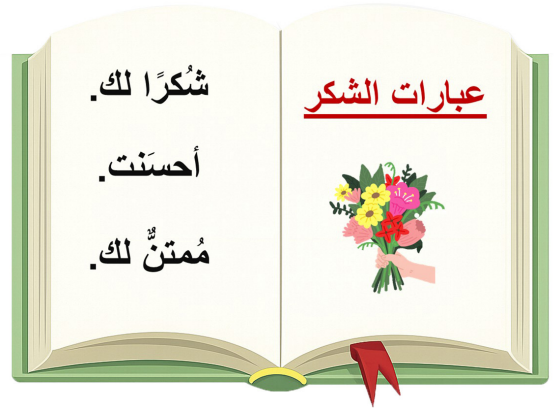 عبارات الشكر
شُكرًا لك.
أحسَنت.
مُمتنٌّ لك.